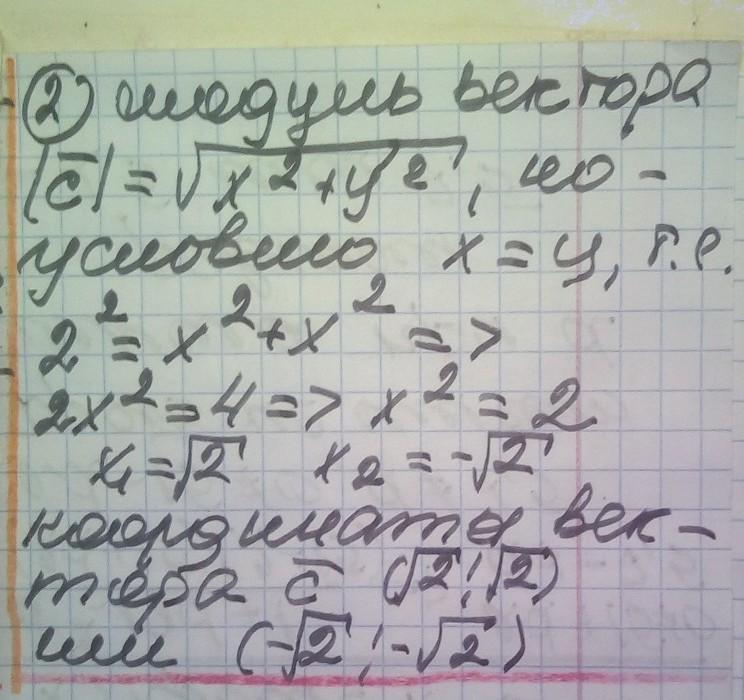 ② модуль вектора
|c̅| = √x²+y², по-
условию x = y, т.е.
2² = x² + x² =>
2x² = 4 => x² = 2
x₁ = √2 x₂ = -√2
координаты век-
тора c̅ (√2; √2)
или (-√2; -√2)